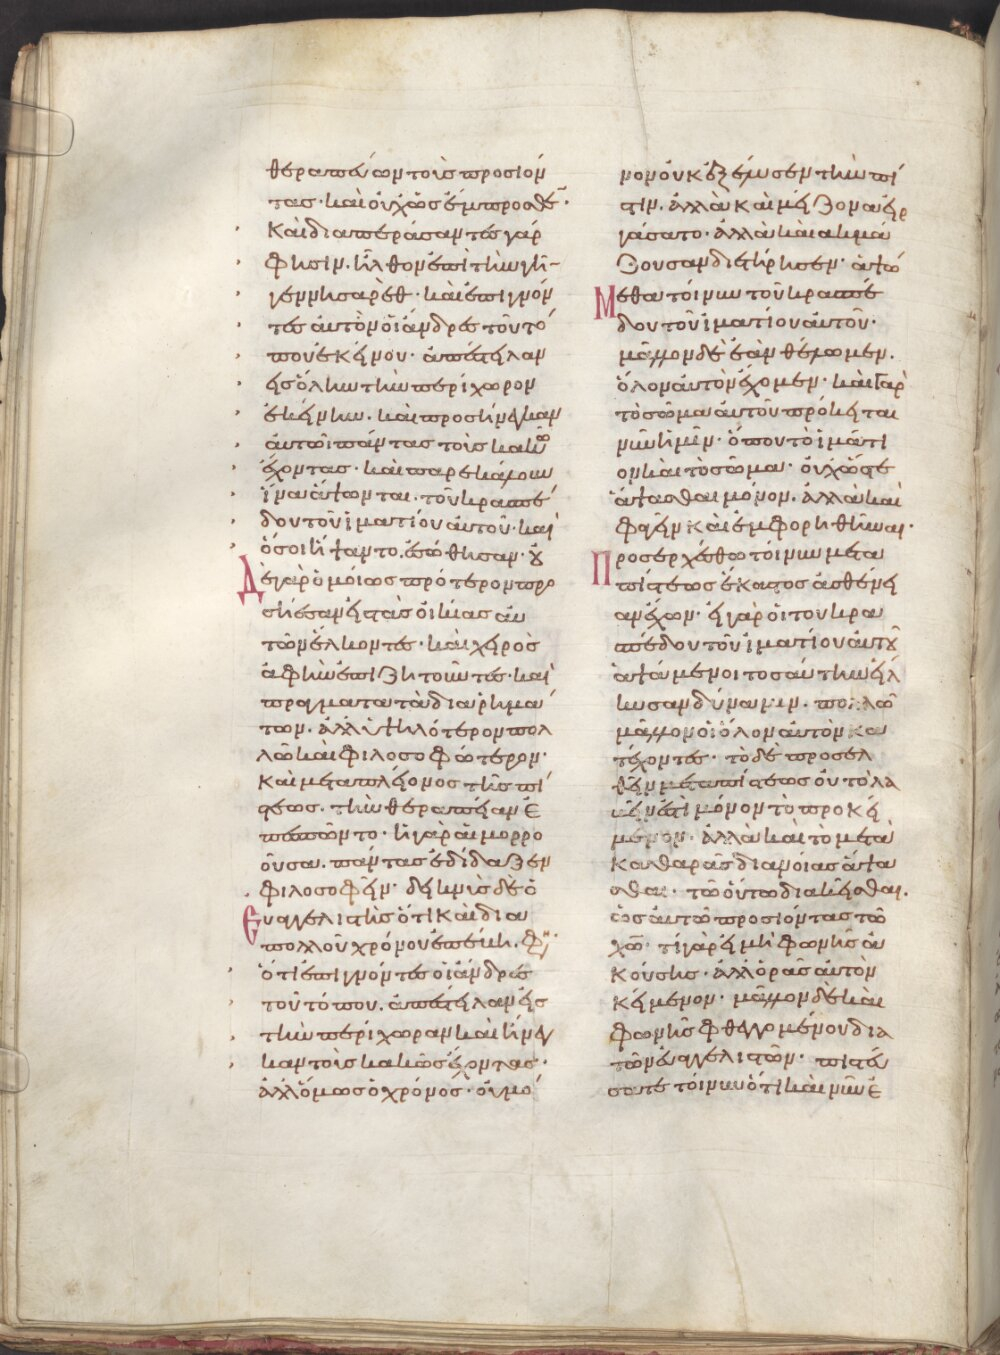 θεραπεύων τοὺς προσιόν
τας· καὶ οὐχ ὡς ἔμπροσθε·
Καὶ διαπεράσαντες γὰρ
φησὶν. ἦλθον ἐπὶ τὴν γῆ
γεννησαρέθ· καὶ ἐπιγνόν
τες αὐτὸν οἱ ἄνδρες τοῦ τό
που ἐκείνου· ἀπέστειλαν
εἰς ὅλην τὴν περίχωρον
ἐκείνην. καὶ προσήνεγκαν
αὐτῶ πάντας τοὺς κακῶ
ἔχοντας· καὶ παρεκάλουν
ἵνα ἅψωνται. τοῦ κρασπέ
δου τοῦ ἱματίου αὐτοῦ· καὶ
ὅσοι ἥψαντο. ἐσώθησαν· ȣ
Δὲ γὰρ ὁμοίως πρότερον προ
σήεσαν εἰς τὰς οἰκίας αὐ
τὸν ἕλκοντες· καὶ χειρὸς
ἁφὴν ἐπιζητοῦντες· καὶ
πράγματα τὰ διὰ ῥημά
των. ἀλλ' ὑψηλότερον πολ
λῶ καὶ φιλοσοφώτερον·
Καὶ μετὰ πλείονος τῆς πί
στεως. τὴν θεραπείαν ἐ
πεσπῶντο· ἡ γὰρ αἱμορρο
οῦσα. πάντας ἐδίδαξεν
φιλοσοφεῖν· δείκνυσι δὲ ὁ
Εὐαγγελιστὴς ὅτι καὶ διὰ
πολλοῦ χρόνου ἐπέβη. φη
ὅτι ἐπιγνόντες οἱ ἄνδρες
τοῦ τόπου. ἀπέστειλαν εἰς
τὴν περίχωραν καὶ ἤνεγ
καν τοὺς κακῶς ἔχοντας·
ἀλλ' ὅμως ὁ χρόνος· οὐ μό
νον οὐκ ἐξέλυσεν τὴν πί
στιν. ἀλλὰ καὶ μείζονα εἰρ
γάσατο· ἀλλὰ καὶ ἀκμά
ζουσαν διετήρησεν· ἁψώ
Μεθα τοίνυν τοῦ κρασπέ
δου τοῦ ἱματίου αὐτοῦ·
μᾶλλον δὲ ἐὰν θέλωμεν.
ὅλον αὐτὸν ἔχομεν· καὶ γὰρ
τὸ σῶμα αὐτοῦ πρόκειται
νῦν ἡμῖν· οὐ τὸ ἱμάτι
ον καὶ τὸ σῶμα· οὐχ ὥστε
ἅψασθαι μόνον. ἀλλὰ καὶ
φαγεῖν καὶ ἐμφορηθῆναι·
Προσερχέσθω τοίνυν μετὰ
πίστεως ἕκαστος ἀσθένει
αν ἔχων· εἰ γὰρ οἱ τοῦ κρα
σπέδου τοῦ ἱματίου αὐτȣ
ἁψάμενοι τοσαύτην εἵλ
κυσαν δύναμιν. πολλῶ
μᾶλλον οἱ ὅλον αὐτὸν κα
τέχοντες· τὸ δὲ προσελ
θεῖν μετὰ πίστεως οὐ τὸ λα
βεῖν ἐστὶ μόνον τὸ προκεί
μενον· ἀλλὰ καὶ τὸ μετὰ
καθαρᾶς διανοίας ἅψα
σθαι· τῶ οὕτω διακεῖσθαι.
ὡς αὐτῶ προσιόντας τῶ
χῶ· τί γὰρ εἰ μὴ φωνῆς ἀ
κούεις· ἀλλ' ὁρᾶς αὐτὸν
κείμενον· μᾶλλον δὲ καὶ
φωνῆς φθεγγομένου διὰ
τῶν εὐαγγελιστῶν· πιστεύ
σατε τοίνυν ὅτι καὶ νῦν ἐ